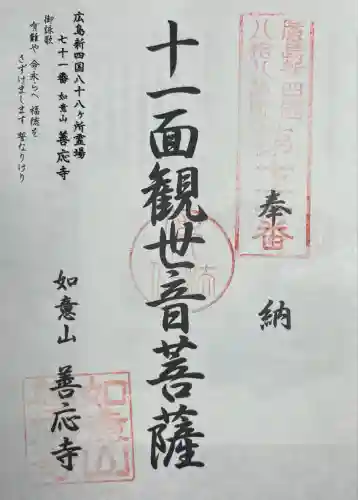 奉納
十一面観世音菩薩
広島新四国八十八ヶ所霊場
七十一番 如意山 善応寺
御詠歌
有難や 今永らへ 福徳を
さずけまします 誓なりけり
如意山 善応寺